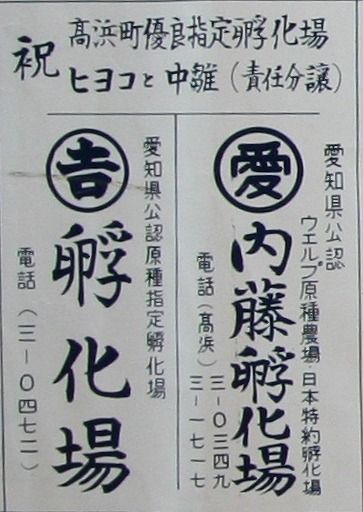 祝
髙浜町優良指定孵化場
ヒヨコと中雛（責任分譲）
愛知県公認
ウエルプ原種農場・日本特約孵化場
愛
内藤孵化場
電話（髙浜）三一〇三四九
三一一七一七
愛知県公認原種指定孵化場
𠮷
孵化場
電話（三一〇四七二）